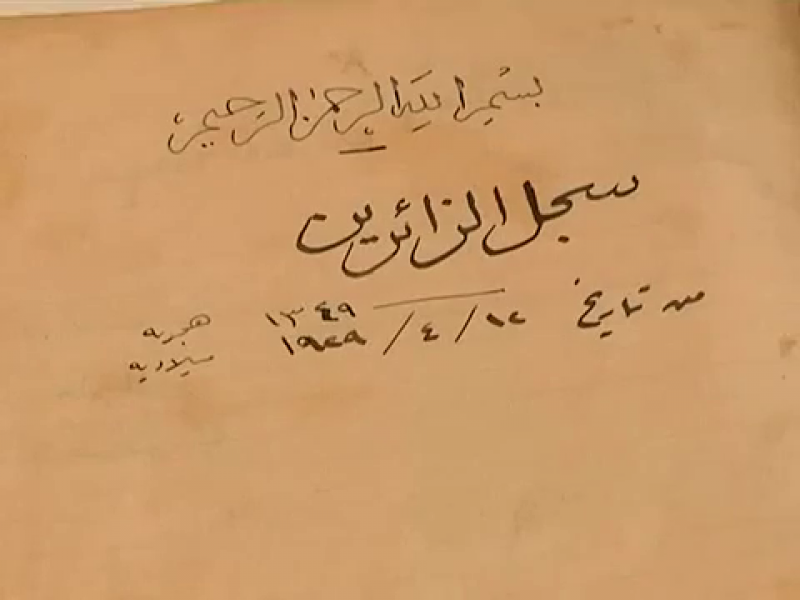 بسم الله الرحمن الرحيم
سجل الزائرين
١٣٤٩ هجريه
من تاريخ ١٢ / ٤ / ١٩٢٩ ميلاديه